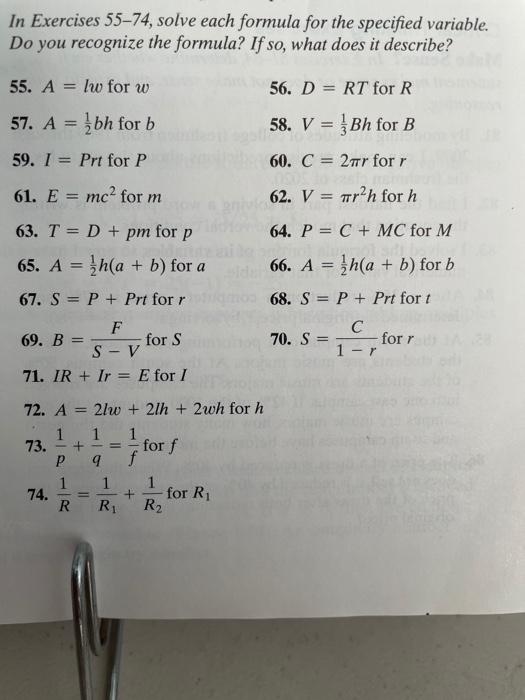 In Exercises 55–74, solve each formula for the specified variable.
Do you recognize the formula? If so, what does it describe?
55. A = lw for w
56. D = RT for R
57. A = ½bh for b
58. V = ⅓Bh for B
59. I = Prt for P
60. C = 2πr for r
61. E = mc² for m
62. V = πr²h for h
63. T = D + pm for p
64. P = C + MC for M
65. A = ½h(a + b) for a
66. A = ½h(a + b) for b
67. S = P + Prt for r
68. S = P + Prt for t
69. B = F/(S − V) for S
70. S = C/(1 − r) for r
71. IR + Ir = E for I
72. A = 2lw + 2lh + 2wh for h
73. 1/p + 1/q = 1/f for f
74. 1/R = 1/R₁ + 1/R₂ for R₁